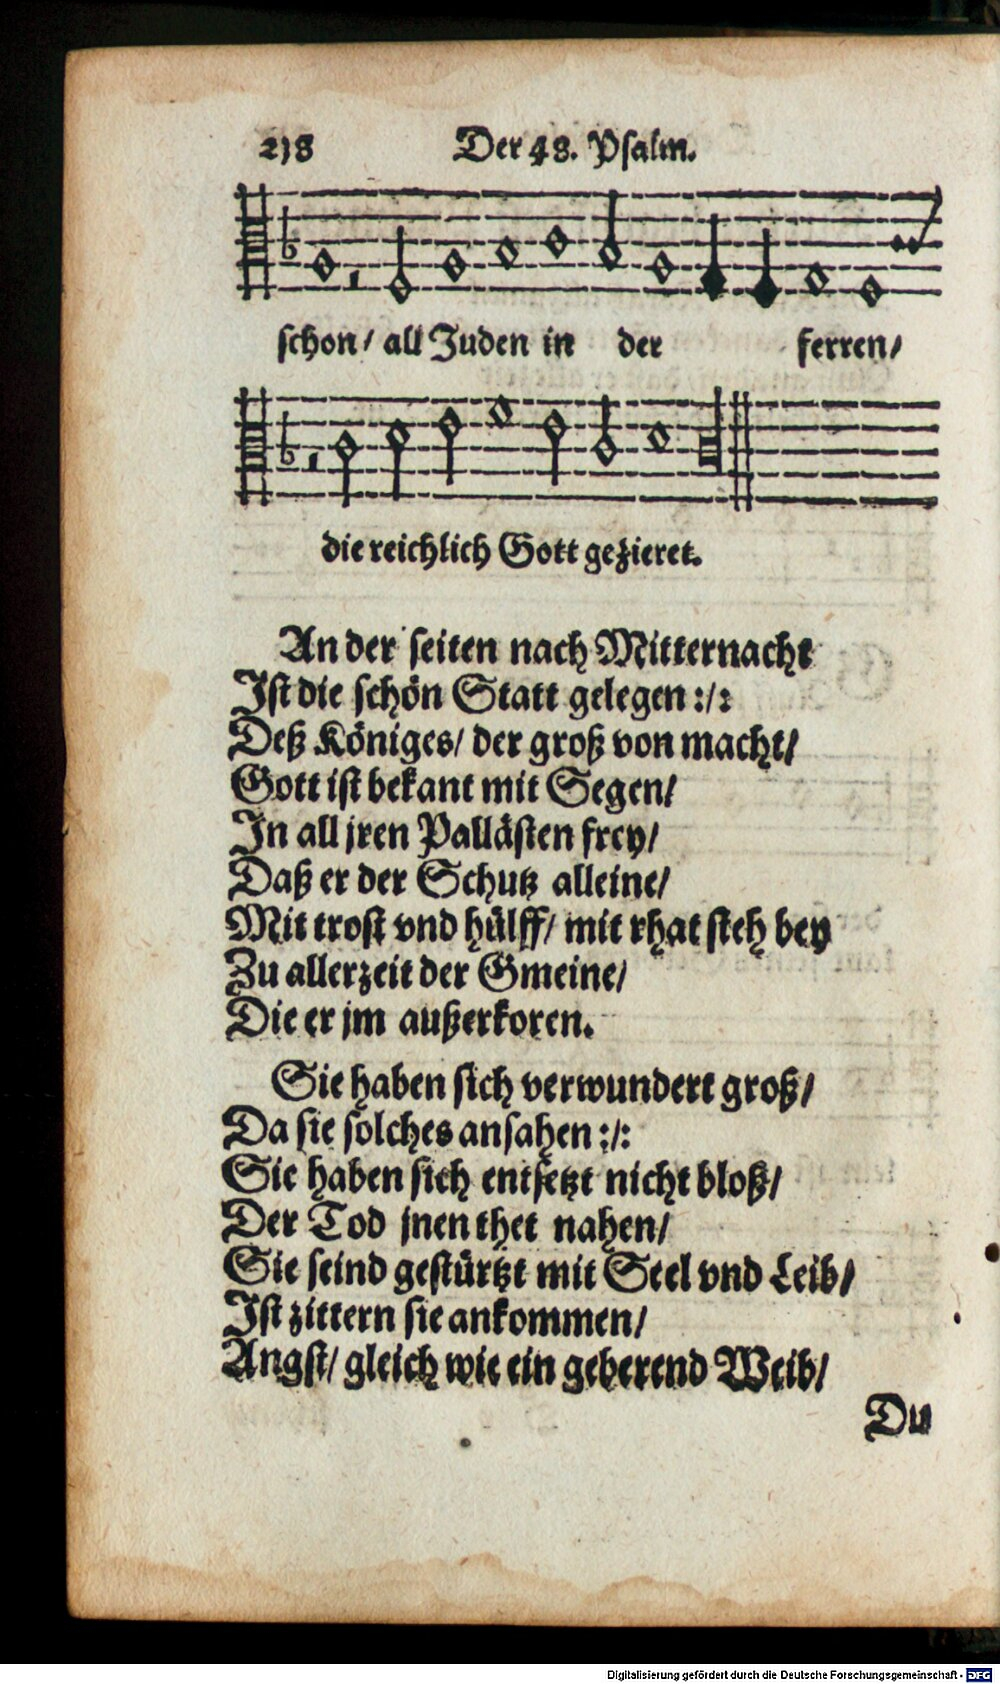 218 Der 48. Psalm.
schon/ all Juden in der ferren/
die reichlich Gott gezieret.
An der seiten nach Mitternacht
Ist die schön Statt gelegen :/:
Deß Königes/ der groß von macht/
Gott ist bekant mit Segen/
In all jren Pallästen frey/
Daß er der Schutz alleine/
Mit trost vnd hülff/ mit rhat steh bey
Zu allerzeit der Gmeine/
Die er jm außerkoren.
Sie haben sich verwundert groß/
Da sie solches ansahen :/:
Sie haben sich entsetzt nicht bloß/
Der Tod jnen thet nahen/
Sie seind gestürtzt mit Seel vnd Leib/
Ist zittern sie ankommen/
Angst/ gleich wie ein geberend Weib/
Du
Digitalisierung gefördert durch die Deutsche Forschungsgemeinschaft - DFG